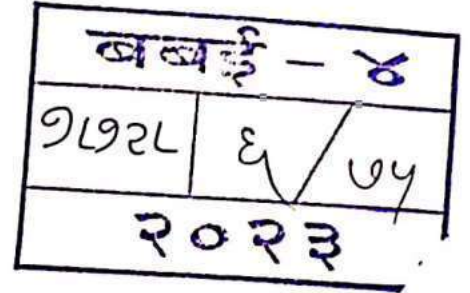 बबई - ४
१८१२८ ६/७५
२०२३